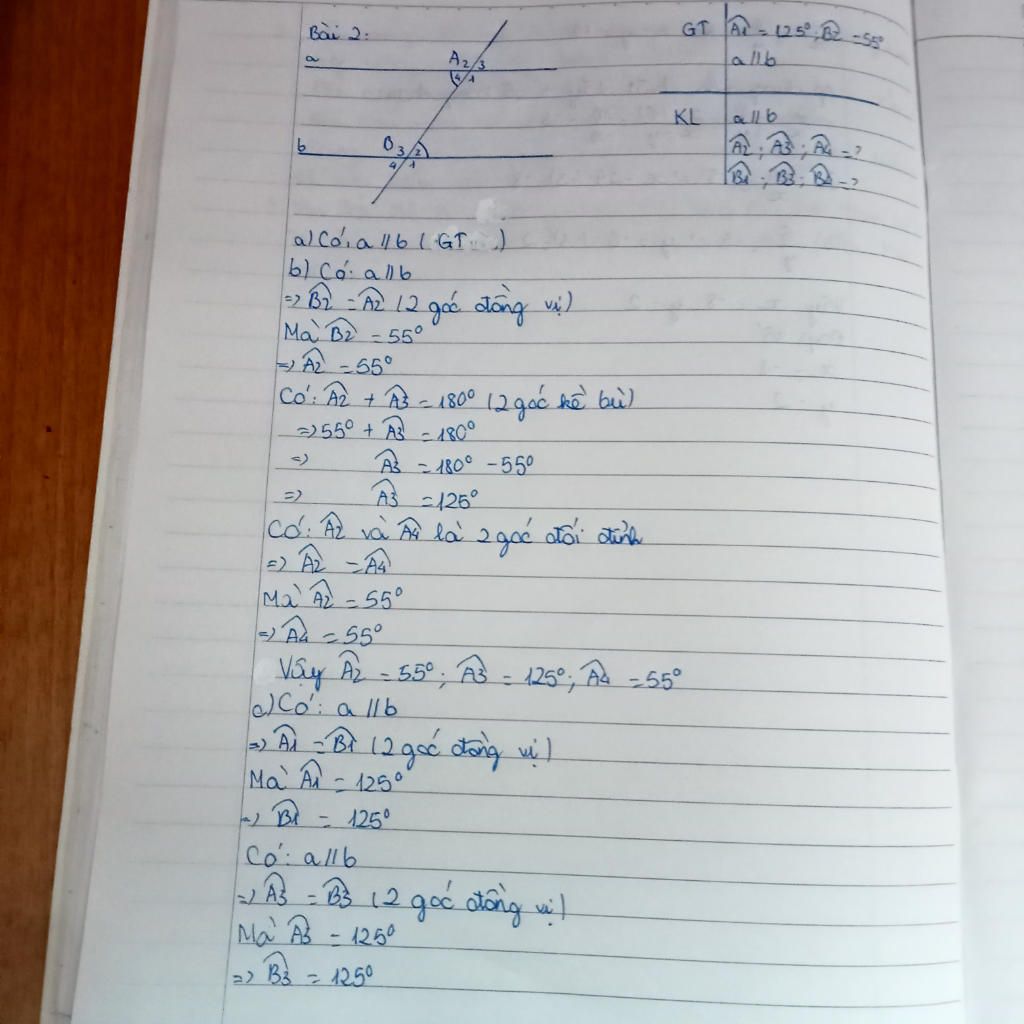 Bài 2:
a
A 2 3
4 1
b
B 3 2
4 1
GT Â1 = 125°; B̂2 = 55°
a // b
KL a // b
Â2 ; Â3 ; Â4 = ?
B̂1 ; B̂3 ; B̂4 = ?
a) Có: a // b ( GT )
b) Có: a // b
=> B̂2 = Â2 (2 góc đồng vị)
Mà B̂2 = 55°
=> Â2 = 55°
Có: Â2 + Â3 = 180° (2 góc kề bù)
=> 55° + Â3 = 180°
=> Â3 = 180° - 55°
=> Â3 = 125°
Có: Â2 và Â4 là 2 góc đối đỉnh
=> Â2 = Â4
Mà Â2 = 55°
=> Â4 = 55°
Vậy Â2 = 55°; Â3 = 125°; Â4 = 55°
c) Có: a // b
=> Â1 = B̂1 (2 góc đồng vị)
Mà Â1 = 125°
=> B̂1 = 125°
Có: a // b
=> Â3 = B̂3 (2 góc đồng vị)
Mà Â3 = 125°
=> B̂3 = 125°